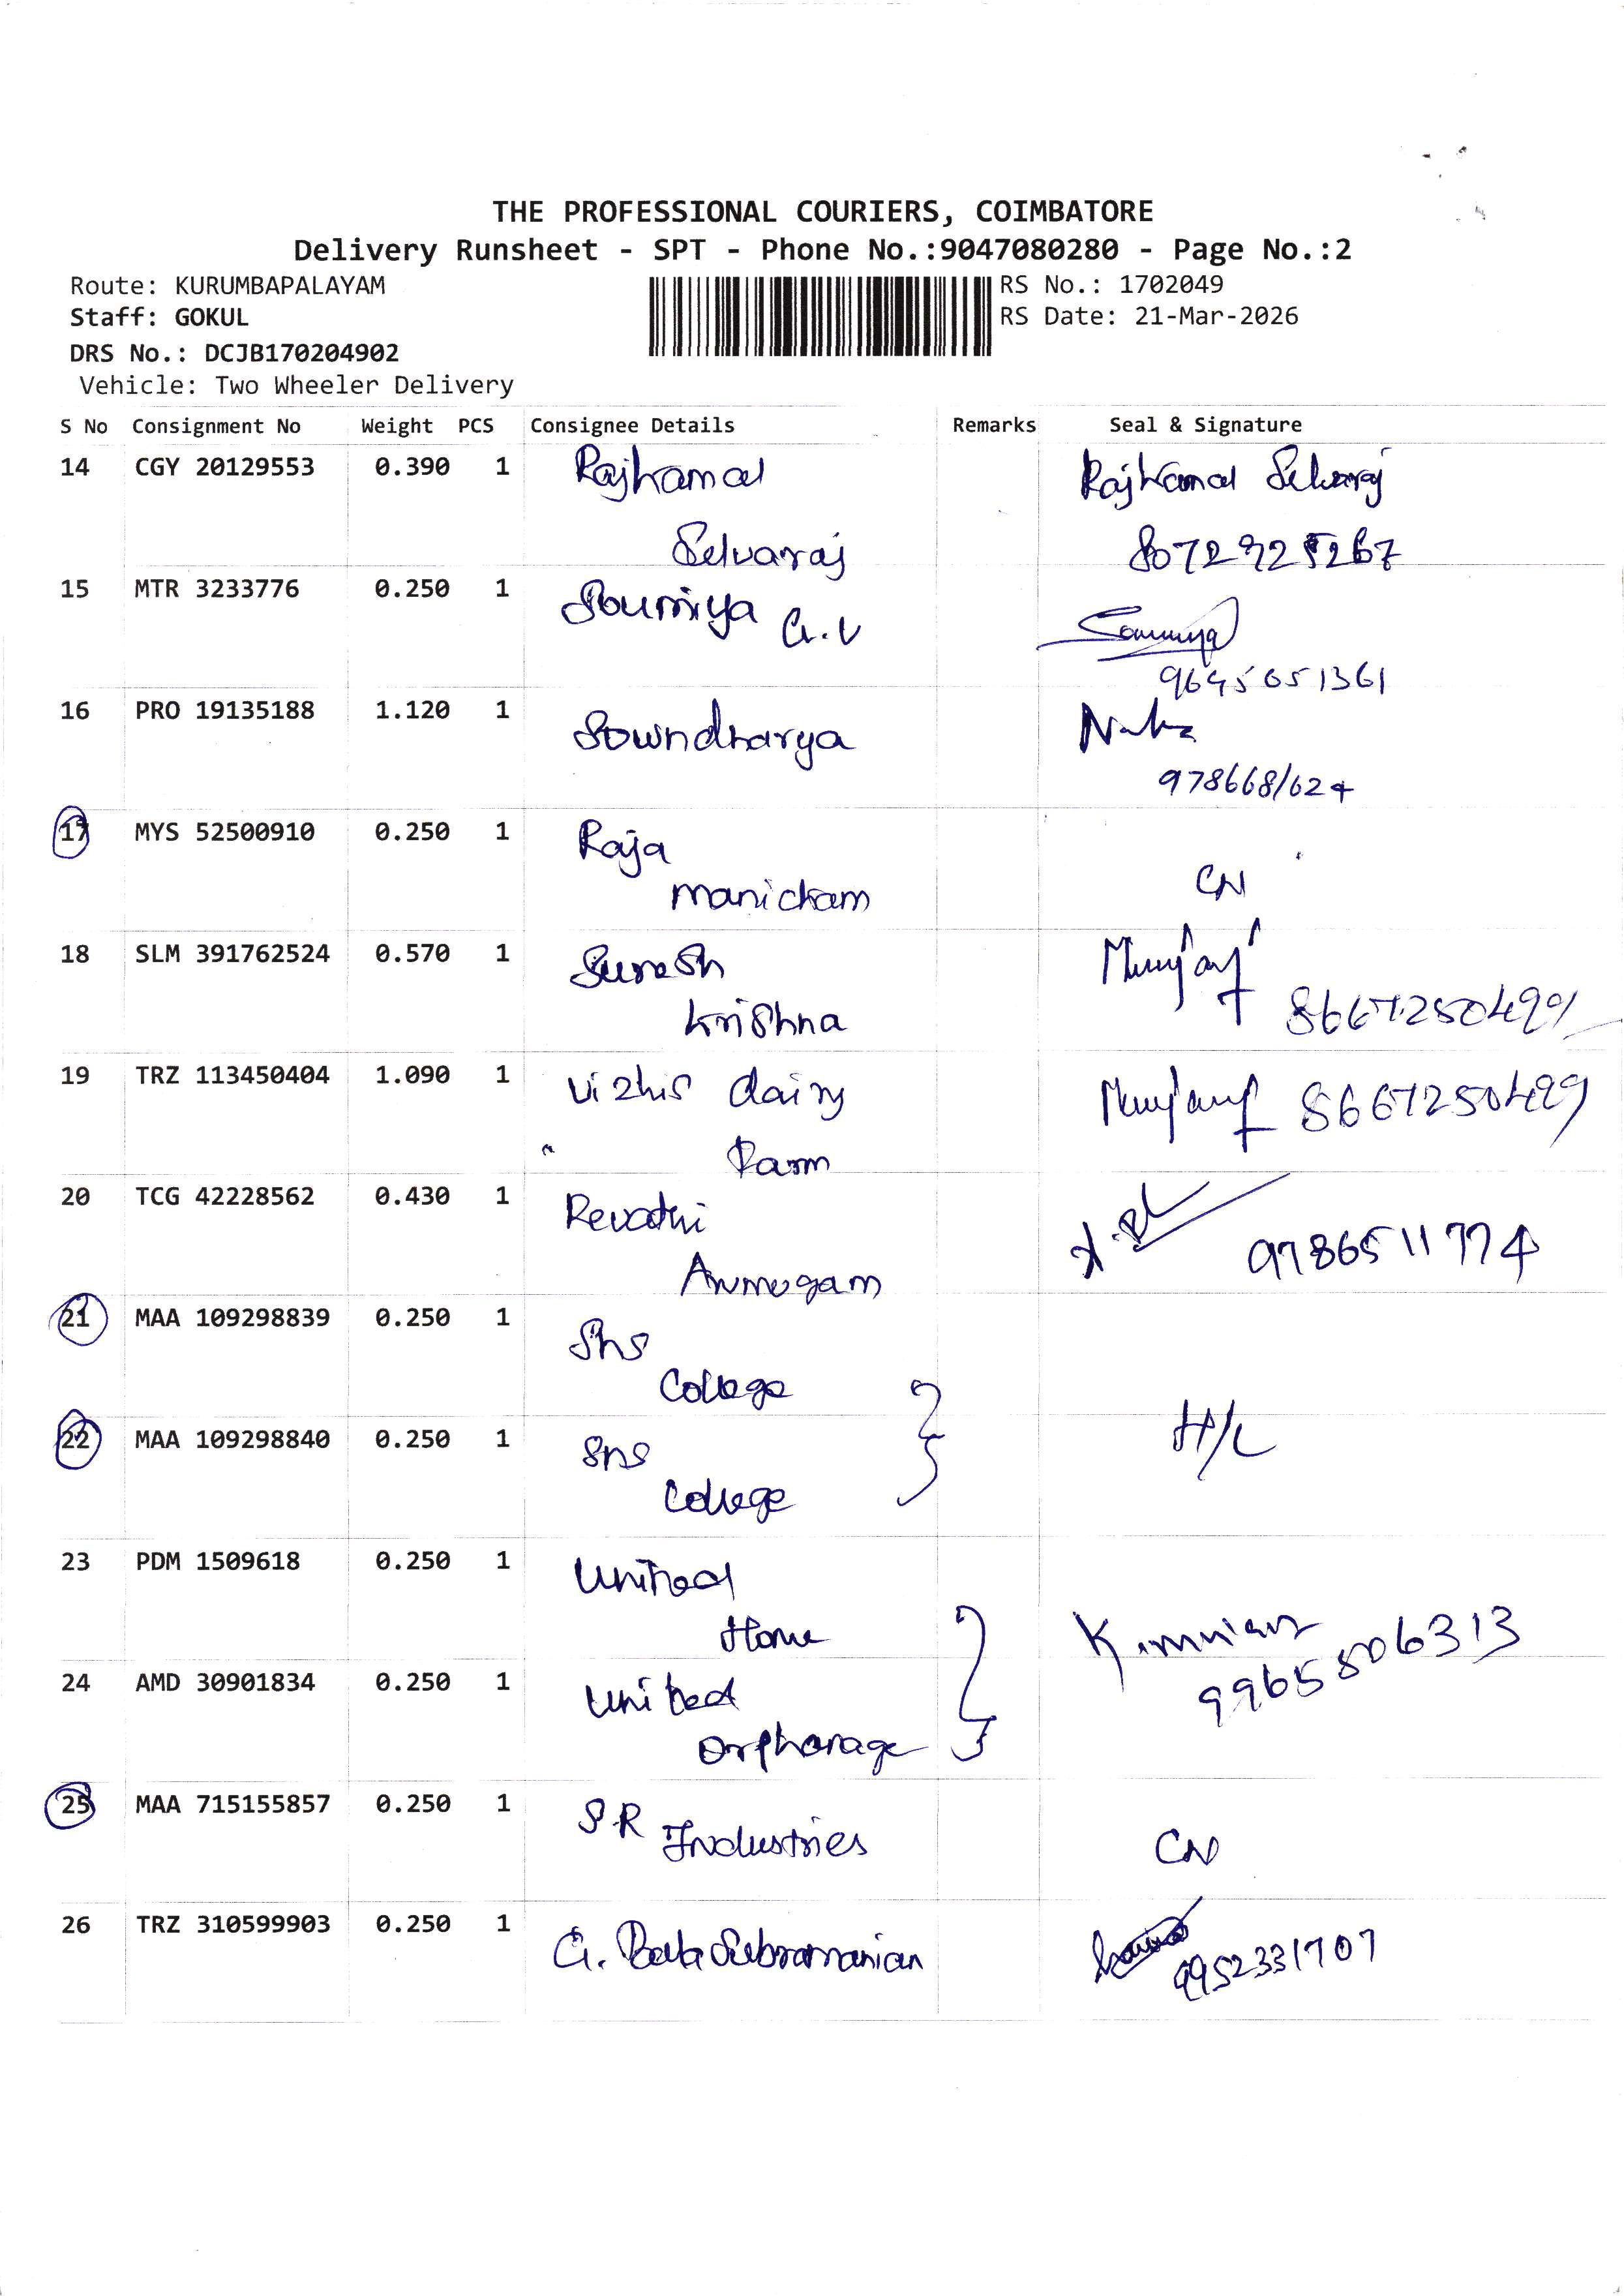 THE PROFESSIONAL COURIERS, COIMBATORE
Delivery Runsheet - SPT - Phone No.:9047080280 - Page No.:2
Route: KURUMBAPALAYAM
RS No.: 1702049
Staff: GOKUL
RS Date: 21-Mar-2026
DRS No.: DCJB170204902
Vehicle: Two Wheeler Delivery
S No Consignment No Weight PCS Consignee Details Remarks Seal & Signature
14 CGY 20129553 0.390 1 Rajkamal Rajkamal Selvaraj
Selvaraj 8072925267
15 MTR 3233776 0.250 1 Soumiya G.V Soumya
9645651361
16 PRO 19135188 1.120 1 Sowndharya
9786681624
17 MYS 52500910 0.250 1 Raja
manickam CN
18 SLM 391762524 0.570 1 Suresh
Krishna 8667250499
19 TRZ 113450404 1.090 1 Vizhis dairy 8667250499
Farm
20 TCG 42228562 0.430 1 Revathi
Arumugam 9786511774
21 MAA 109298839 0.250 1 Sns
College
22 MAA 109298840 0.250 1 Sns H/L
College
23 PDM 1509618 0.250 1 United
Home
24 AMD 30901834 0.250 1 United 9965506313
Orphanage
25 MAA 715155857 0.250 1 SR
Industries CN
26 TRZ 310599903 0.250 1 G. BalaSubramanian 9952331707